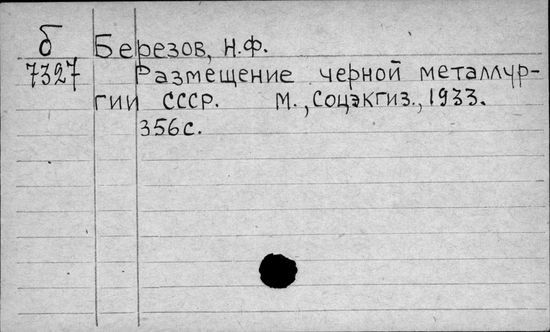 б Березов, Н.Ф.
7327 Размещение черной металлур-
гии СССР. М., Соцэкгиз., 1933.
356с.